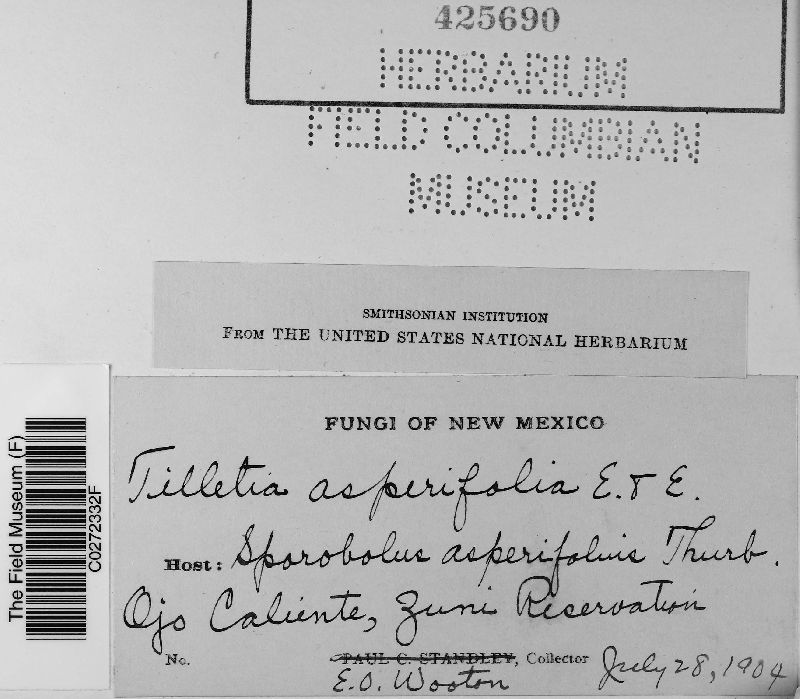 425690
HERBARIUM
FIELD COLUMBIAN
MUSEUM
SMITHSONIAN INSTITUTION
FROM THE UNITED STATES NATIONAL HERBARIUM
The Field Museum (F)
C0272332F
FUNGI OF NEW MEXICO
Tilletia asperifolia E. & E.
Host: Sporobolus asperifolius Thurb.
Ojo Caliente, Zuni Reservation
No. PAUL C. STANDLEY, Collector July 28, 1904
E. O. Wooton